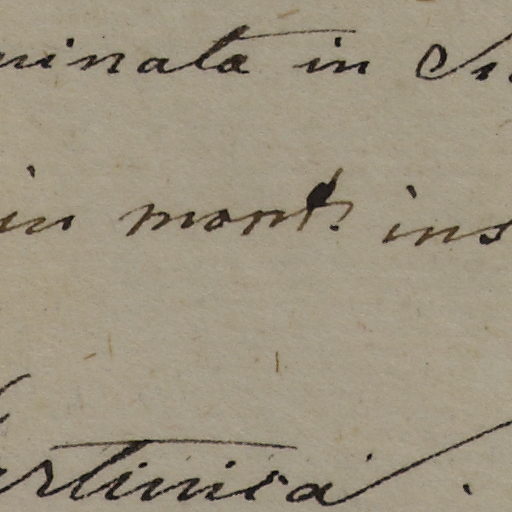 minata in
in mont. ins
artinica.